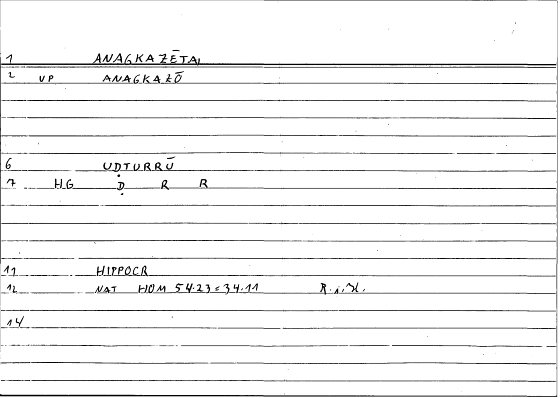 1 ANAGKAZĒTAI
2 VP ANAGKAZŌ
6 UḌTURRŪ
7 HG Ḍ R R
11 HIPPOCR
12 NAT HOM 54.23 = 34.11
14